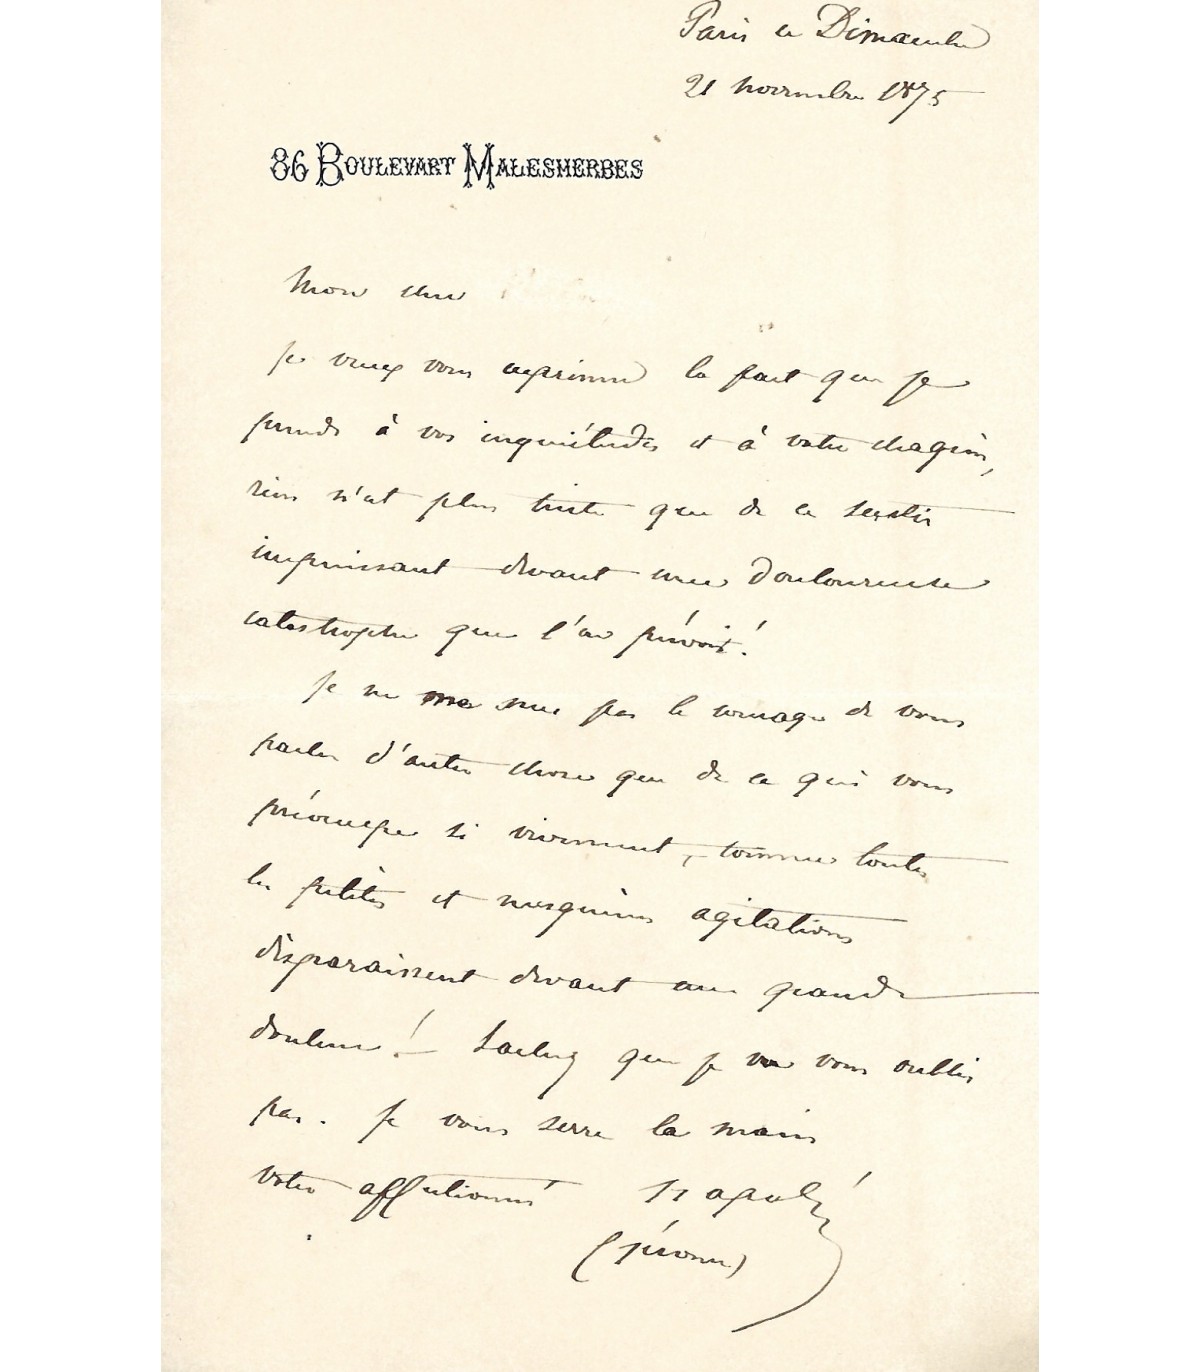 Paris ce Dimanche
21 novembre 1875
86 BOULEVART MALESHERBES
Mon cher
Je veux vous exprimer la part que je
prends à vos inquiétudes et à votre chagrin,
rien n'est plus triste que de ce sentir
impuissant devant une douloureuse
catastrophe que l'on prévoit!
Je ne me sens pas le courage de vous
parler d'autre chose que de ce qui vous
préoccupe si vivement, comme toutes
les petites et mesquines agitations
disparaissent devant une grande
douleur! Sachez que je ne vous oublis
pas. Je vous serre la main
votre affectionné Napoléon
(Jérome)